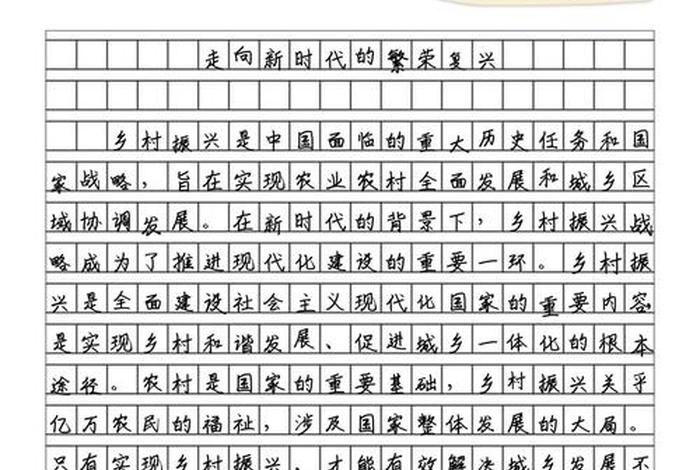 走向新时代的繁荣复兴
乡村振兴是中国面临的重大历史任务和国
家战略，旨在实现农业农村全面发展和城乡区
域协调发展。在新时代的背景下，乡村振兴战
略成为了推进现代化建设的重要一环。乡村振
兴是全面建设社会主义现代化国家的重要内容，
是实现乡村和谐发展、促进城乡一体化的根本
途径。农村是国家的重要基础，乡村振兴关乎
亿万农民的福祉，涉及国家整体发展的大局。
只有实现乡村振兴，才能有效解决城乡发展不